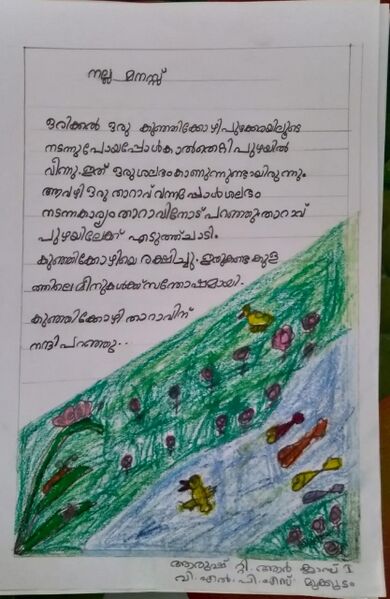 നല്ല മനസ്സ്
ഒരിക്കൽ ഒരു കുഞ്ഞിക്കോഴി പുഴക്കരയിലൂടെ
നടന്നുപോയപ്പോൾ കാൽതെറ്റി പുഴയിൽ
വീണു. ഇത് ഒരു ശലഭം കാണുന്നുണ്ടായിരുന്നു.
ആവഴി ഒരു താറാവ് വന്നപ്പോൾ ശലഭം
നടന്നകാര്യം താറാവിനോട് പറഞ്ഞു. താറാവ്
പുഴയിലേക്ക് എടുത്ത് ചാടി.
കുഞ്ഞിക്കോഴിയെ രക്ഷിച്ചു. ഇതുകണ്ട കുള
ത്തിലെ മീനുകൾക്ക് സന്തോഷമായി.
കുഞ്ഞിക്കോഴി താറാവിന്
നന്ദി പറഞ്ഞു..
ആരുഷ് റ്റി. ആർ ക്ലാസ് I
വി. എൽ. പി. എസ് മുക്കുടം